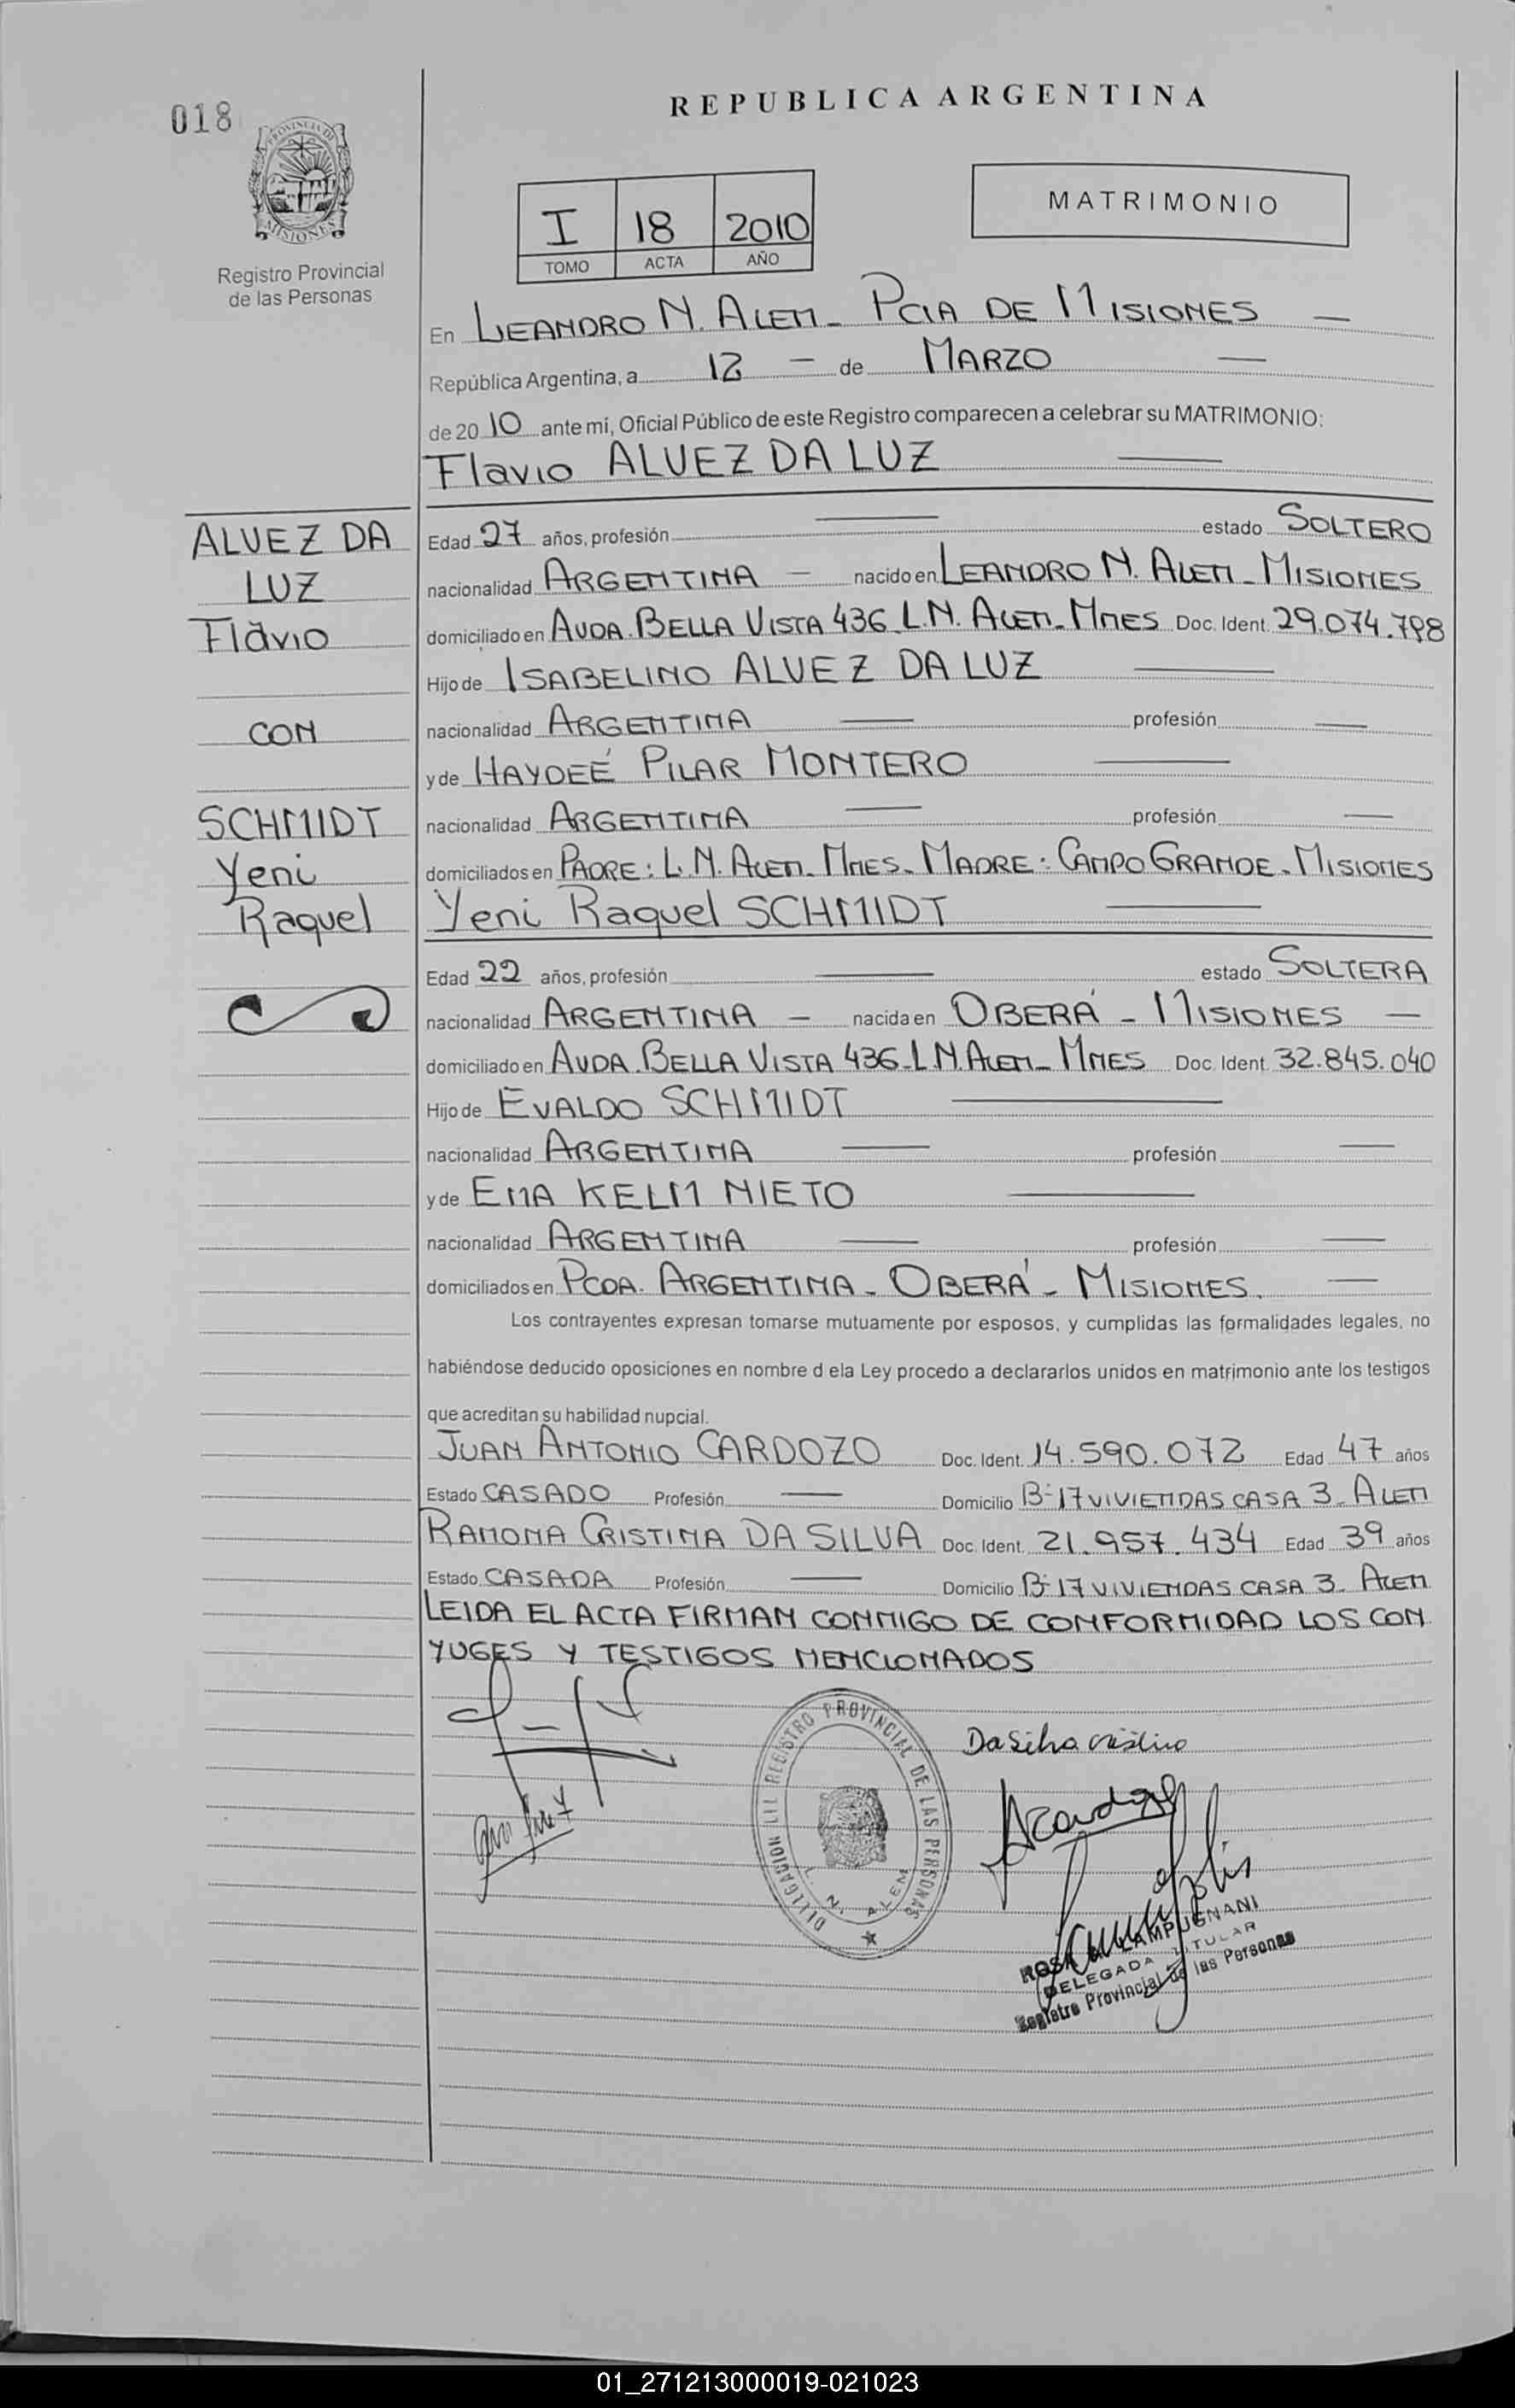 018
REPUBLICA ARGENTINA
PROVINCIA DE MISIONES
Registro Provincial
de las Personas
I 18 2010
TOMO ACTA AÑO
MATRIMONIO
En LEANDRO N. ALEM - PCIA DE MISIONES —
República Argentina, a 12 — de MARZO —
de 20 10 ante mí, Oficial Público de este Registro comparecen a celebrar su MATRIMONIO:
Flavio ALVEZ DA LUZ —
ALVEZ DA
LUZ
Flavio
CON
SCHMIDT
Yeni
Raquel
Edad 27 años, profesión — estado SOLTERO
nacionalidad ARGENTINA — nacido en LEANDRO N. ALEM - MISIONES
domiciliado en AVDA. BELLA VISTA 436 - L.N. ALEM - MNES Doc. Ident. 29.074.798
Hijo de ISABELINO ALVEZ DA LUZ —
nacionalidad ARGENTINA — profesión —
y de HAYDEÉ PILAR MONTERO —
nacionalidad ARGENTINA — profesión —
domiciliados en PADRE: L. N. ALEM - MNES - MADRE: CAMPO GRANDE - MISIONES
Yeni Raquel SCHMIDT —
Edad 22 años, profesión — estado SOLTERA
nacionalidad ARGENTINA — nacida en OBERÁ - MISIONES —
domiciliado en AVDA. BELLA VISTA 436 - L.N. ALEM - MNES Doc. Ident. 32.845.040
Hijo de EVALDO SCHMIDT —
nacionalidad ARGENTINA — profesión —
y de EMA KELM NIETO —
nacionalidad ARGENTINA — profesión —
domiciliados en PCDA. ARGENTINA - OBERÁ - MISIONES. —
Los contrayentes expresan tomarse mutuamente por esposos, y cumplidas las formalidades legales, no
habiéndose deducido oposiciones en nombre d ela Ley procedo a declararlos unidos en matrimonio ante los testigos
que acreditan su habilidad nupcial.
JUAN ANTONIO CARDOZO Doc. Ident. 14.590.072 Edad 47 años
Estado CASADO Profesión — Domicilio B-17 VIVIENDAS CASA 3 - ALEM
RAMONA CRISTINA DA SILVA Doc. Ident. 21.957.434 Edad 39 años
Estado CASADA Profesión — Domicilio B-17 VIVIENDAS CASA 3 - ALEM
LEIDA EL ACTA FIRMAN CONMIGO DE CONFORMIDAD LOS CON
YUGES Y TESTIGOS MENCIONADOS
REGISTRO PROVINCIAL DE LAS PERSONAS
L. N. ALEM
Da Silva cristina
LAMPUGNANI
DELEGADA TITULAR
Registro Provincial de las Personas
01_271213000019-021023